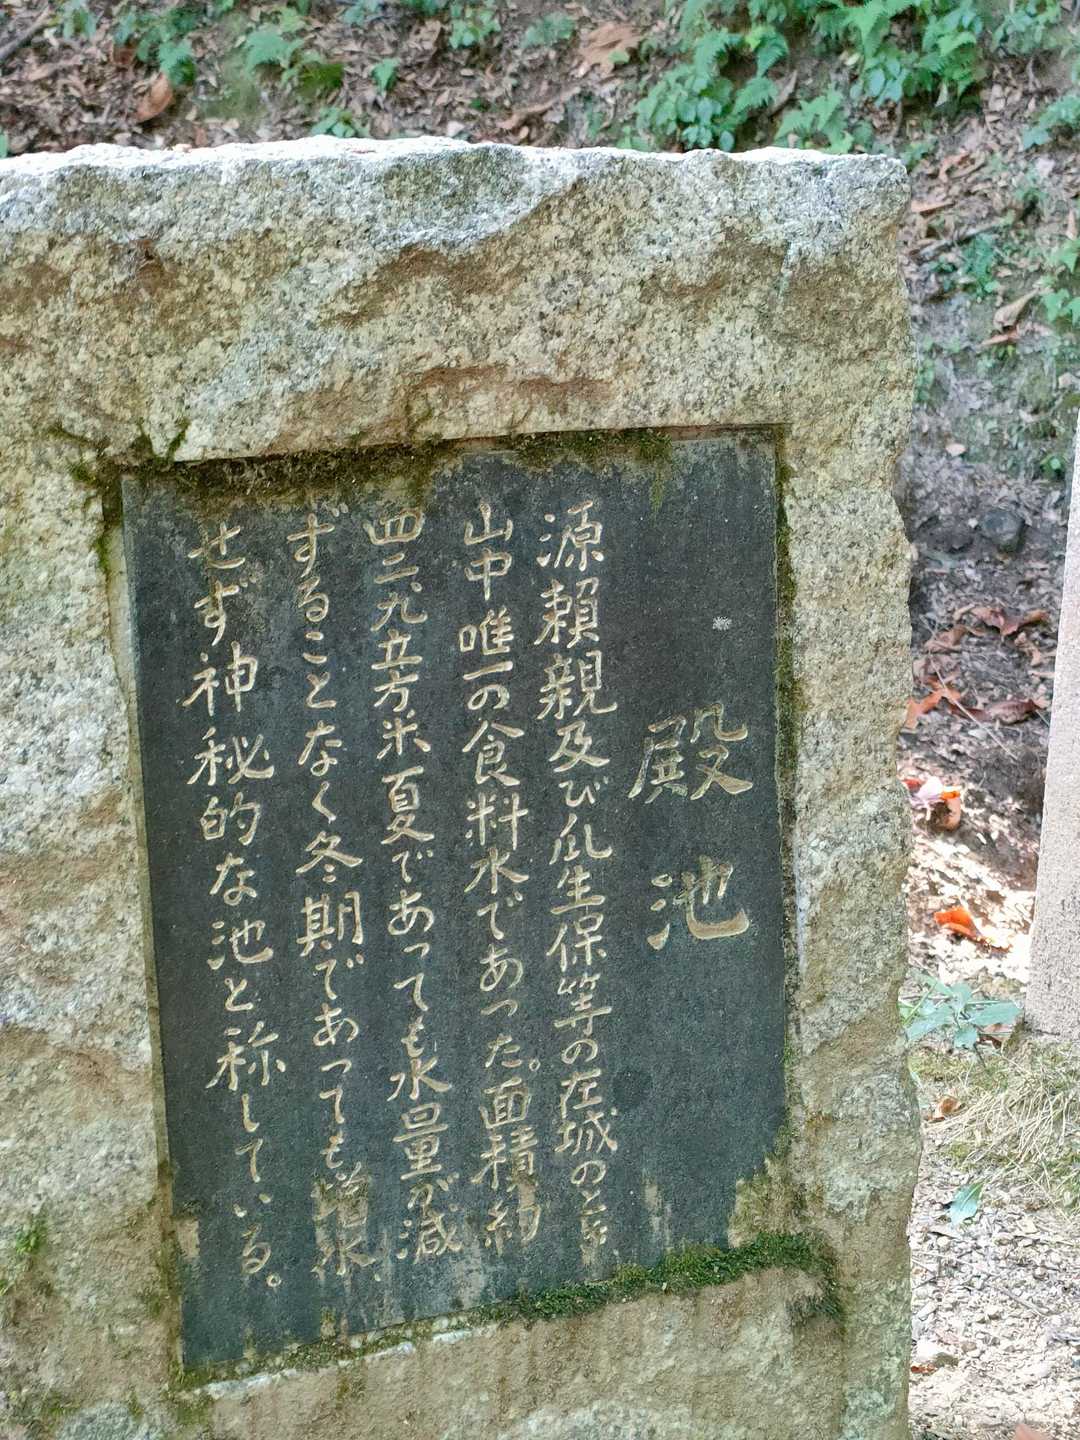 殿池
源頼親及び瓜生保等の在城のとき
山中唯一の食料水であった。面積約
四二九五方米夏であっても水量が減
ずることなく冬期であっても増水
せず神秘的な池と称している。